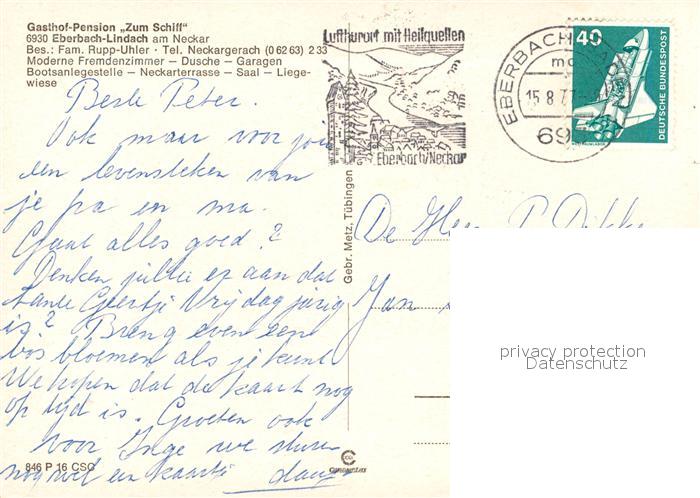 Gasthof-Pension „Zum Schiff"
6930 Eberbach-Lindach am Neckar
Bes.: Fam. Rupp-Uhler · Tel. Neckargerach (0 62 63) 2 33
Moderne Fremdenzimmer — Dusche — Garagen
Bootsanlegestelle — Neckarterrasse — Saal — Liege-
wiese
Luftkurort mit Heilquellen
Eberbach/Neckar
EBERBACH
15.8.77
69
40
DEUTSCHE BUNDESPOST
Beste Peter.
Ook maar voor jou
een levensteken van
je pa en ma.
Gaat alles goed?
Denken jullie er aan dat
tante Geertje Vrijdag jarig
is? Breng even een
bos bloemen als je kunt
We hopen dat de kaart nog
op tijd is. Groeten ook
voor Inge we sturen
nog wel een kaartje
Gebr. Metz, Tübingen
De Heer P.
Jan
privacy protection
Datenschutz
846 P 16 CSC